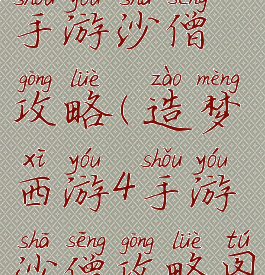 shǒu yóu shā sēng
手游沙僧
gōng lüè zào mèng
攻略(造梦
xī yóu shǒu yóu
西游4手游
shā sēng gōng lüè tú
沙僧攻略图